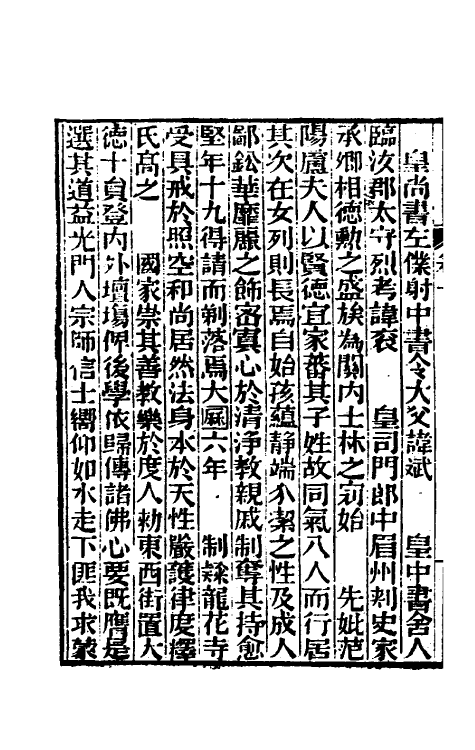 皇尚書左僕射中書令大父諱斌　　皇中書舍人
臨汝郡太守烈考諱袞　　皇司門郎中眉州刺史家
承卿相德勲之盛族為關内士林之冠始　　先妣范
陽盧夫人以賢德宜家蕃其子姓故同氣八人而行居
其次在女列則長焉自始孩蘊静端介潔之性及成人
鄙鉛華靡麗之飾密寘心於清淨教親戚制奪其持愈
堅年十九得請而剃落焉大曆六年　　制隸龍花寺
受具戒於照空和尚居然法身本於天性嚴護律度釋
氏高之　　國家崇其善教樂於度人勑東西街置大
德十員登内外壇場俾後學依歸傳諸佛心要既膺是
選其道益光門人宗師信士嚮仰如水走下匪我求蒙